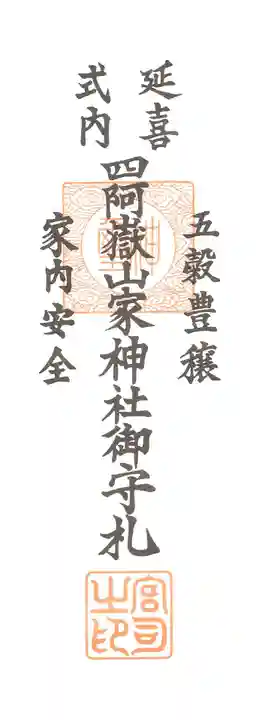 延喜
式内
四阿嶽山家神社御守札
五穀豊穣
家内安全
宮司之印